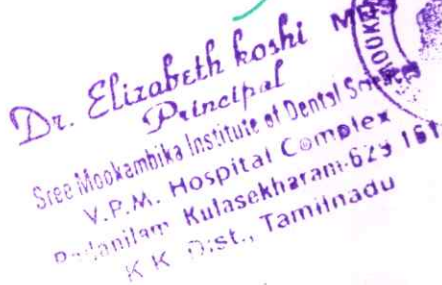 Dr. Elizabeth koshi M
Principal
Sree Mookambika Institute of Dental
V.P.M. Hospital Complex
Padanilam Kulasekharam-629 161
K K Dist., Tamilnadu
MOOK